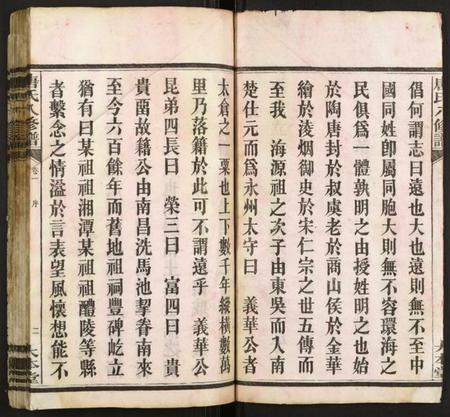 倡何謂志曰遠也大也遠則無不至中
國同姓卽屬同胞大則無不容環海之
民俱爲一體孰明之由授姓明之也始
於陶唐封於叔虞老於商山侯於金華
繪於淩烟御史於宋仁宗之世五傳而
至我 海源祖之次子由東吳而入南
楚仕元而爲永州太守曰 義華公者
太倉之一粟也上下數千年縱橫數萬
里乃落籍於此可不謂遠乎 義華公
昆弟四長曰 榮三曰 富四曰 貴
貴茁故籍公由南昌洗馬池挈眷南來
至今六百餘年而舊地祖祠豐碑屹立
猶有曰某祖祖湘潭某祖祖醴陵等縣
者繫念之情溢於言表望風懷想能不
唐氏八修譜
卷一 序
二